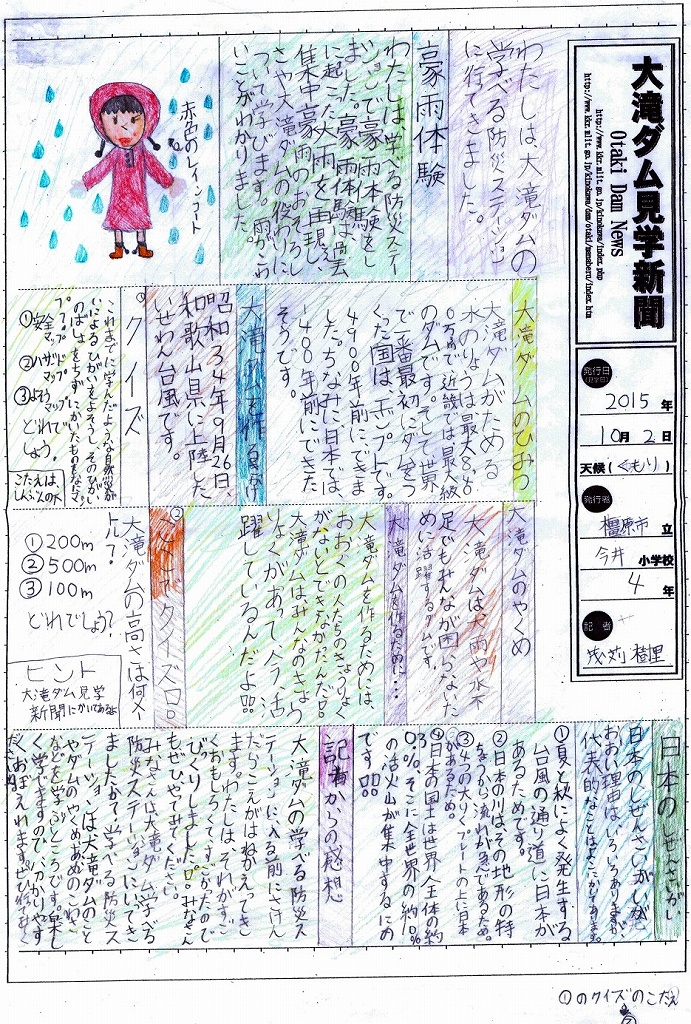 大滝ダム見学新聞
Otaki Dam News
http://www.kkr.mlit.go.jp/kinokawa/index.php
http://www.kkr.mlit.go.jp/kinokawa/dam/otaki/manaberu/index.htm
発行日
(見学日)
2015年
10月2日
天候(くもり)
発行者
橿原市立
今井小学校
4年
記者
わたしは、大滝ダムの
学べる防災ステーション
に行てきました。
豪雨体験
わたしは学べる防災ステー
ションで豪雨体験をし
ました。豪雨体馬は、過去
に起こった大雨を再現し、
集中豪雨のおそろし
さや大滝ダムの役わりに
ついて学びます。雨がこわ
いことがわかりました。
赤色のレインコート
大滝ダムのひみつ
大滝ダムがためる
水のりょうは最大8,40
0万㎥で近畿では最大級
のダムです。そして世界
で一番最初にダムをつ
くった国は、エジプトです。
4900年前にできま
した。ちなみに日本では、
1400年前にできた
そうです。
大滝ダムを作るきっかけ
昭和34年9月26日、
和歌山県に上陸した
いせわん台風です。
①クイズ
これまでに学んだような自然災が
いによるひがいをよそうし、そのひがい
のはんいをちずにかいたものをなにマッ
プ?
①安全マップ
②ハザードマップ
③よそうマップ
どれでしょう。
こたえは、
しんぶんの下
大滝ダムのやくめ
大滝ダムは、大雨や水不
足でもみんなが困らないた
めに活躍するダムです。
大滝ダムを作るために…
大滝ダムを作るためには、
おおくの人たちのきょうりょく
がないとできなかったんだ!!
大滝ダムはみんなのきょうり
ょくがあって今、活
躍しているんだよ!!
大滝ダムの高さは何メー
トル?
①200m
②500m
③100m
どれでしょう?
ヒント
大滝ダム見学
新聞にかいてあるよ
日本のしぜんさいがい
日本のしぜんさいがいが
おおい理由は、いろいろありますが、
代表的なことは下にかいてあります。
①夏と秋によく発生する
台風の通り道に日本が
あるためです。
②日本の川はその地形の特
ちょうから流れが急であるため。
③4つの大りくプレートの上に日本
があるため。
④日本の国土は世界全体の約
0.3%。そこに全世界の約10%
の活火山が集中するため
です!!
記者からの感想
大滝ダムの学べる防災ス
テーションに入る前にさけん
だらこえがはねかえってき
ます。わたしは、それがすご
くおもしろくて、すごかったので
びっくりしました!!みなさん
もぜひやってみてください。
みなさんは大滝ダム学べる
防災ステーションにいてき
ましたか?学べる防災ス
テーションは大滝ダムのこと
やダムのやくめあめのこわさ
などを学ぶところです。楽し
く学べますので分かりやす
くおぼえれます。ぜひ行ってみてく
ださいね
①のクイズのこたえ
②